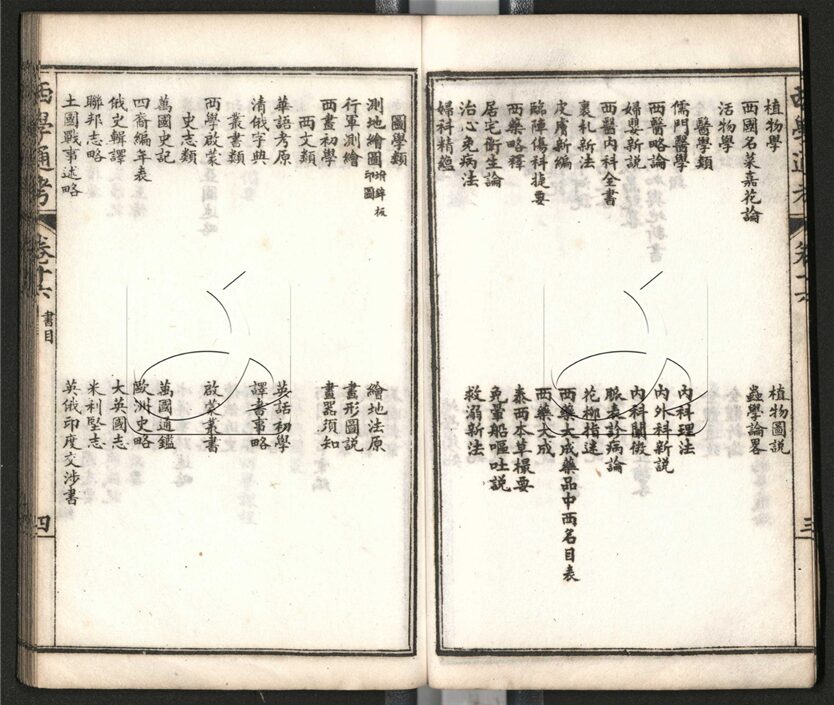 西學通考 卷十六 三
植物學 植物圖説
西國名菜嘉花論 蟲學論畧
活物學
醫學類
儒門醫學 內科理法
西醫略論 內外科新説
婦嬰新説 內科闡微
西醫內科全書 脈表診病論
裹札新法 花柳指迷
皮膚新編 西藥大成藥品中西名目表
臨陣傷科捷要 西藥大成
西藥略釋 泰西本草撮要
居宅衛生論 免暈船嘔吐説
治心免病法 救溺新法
婦科精蘊
圖學類
測地繪圖 附鋅板印圖 繪地法原
行軍測繪 畫形圖説
西畫初學 畫器須知
西文類
華語考原 英話初學
清俄字典 譯書事略
叢書類
西學啟蒙 啟蒙叢書
史志類
萬國史記 萬國通鑑
四裔編年表 歐洲史略
俄史輯譯 大英國志
聯邦志略 米利堅志
土國戰事述略 英俄印度交涉書
西學通考 卷十六 書目 四